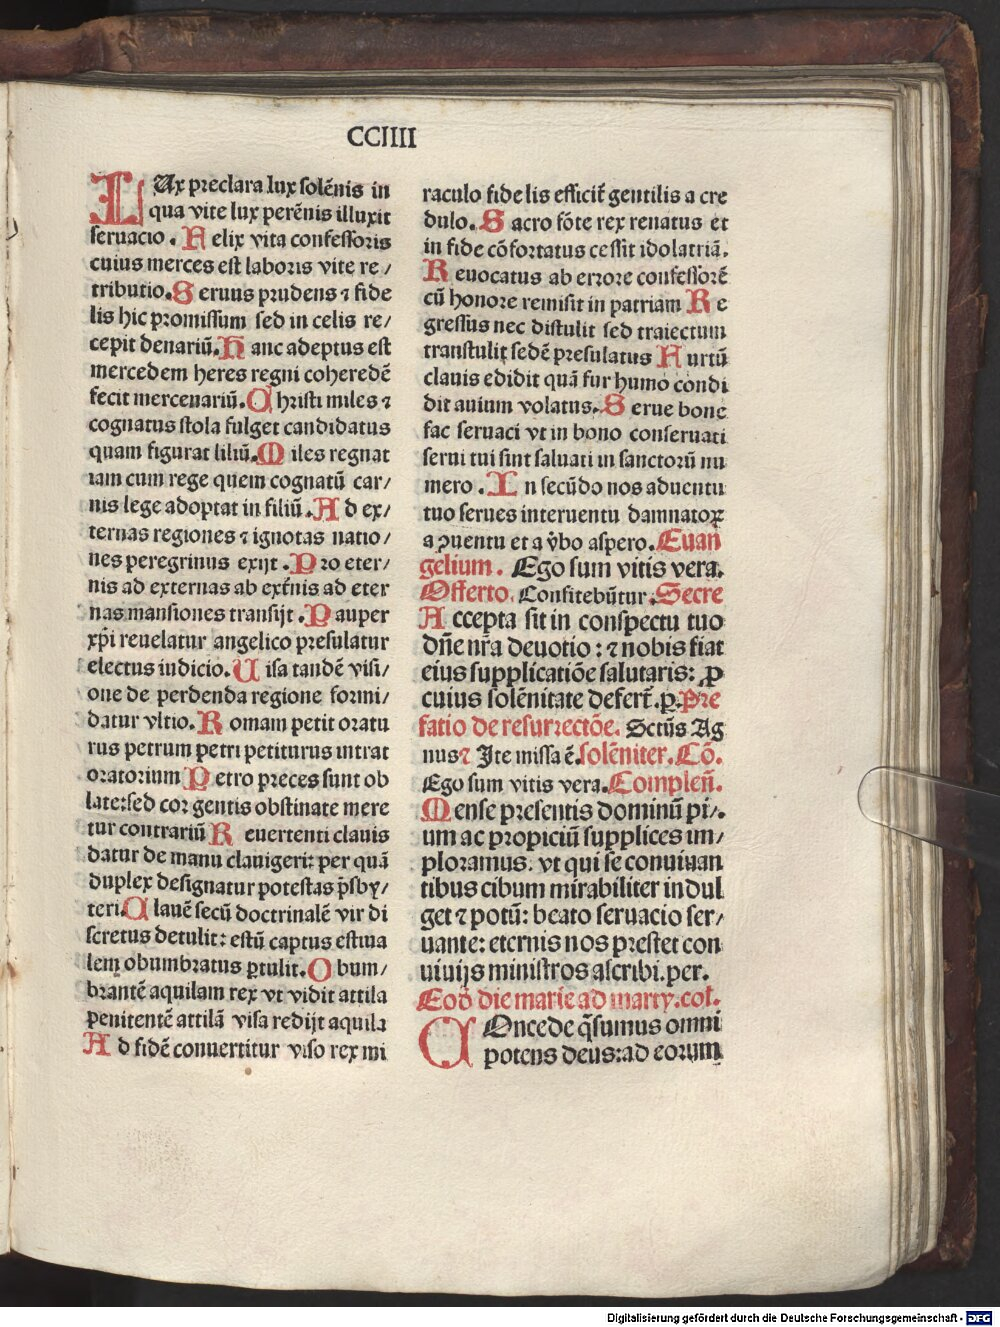 CCIIII
LUx preclara lux solēnis in
qua vite lux perēnis illuxit
seruacio. Felix vita confessoris
cuius merces est laboris vite re/
tributio. Seruus prudens ⁊ fide
lis hic promissum sed in celis re/
cepit denariū. Hanc adeptus est
mercedem heres regni coheredē
fecit mercenariū. Christi miles ⁊
cognatus stola fulget candidatus
quam figurat liliū. Miles regnat
iam cum rege quem cognatū car/
nis lege adoptat in filiū. Ad ex/
ternas regiones ⁊ ignotas natio/
nes peregrinus exijt. Pro eter/
nis ad externas ab ext̄nis ad eter
nas mansiones transijt. Pauper
xp̄i reuelatur angelico presulatur
electus iudicio. Uisa tandē visi/
one de perdenda regione formi/
datur vltio. Romam petit oratu
rus petrum petri petiturus intrat
oratorium Petro preces sunt ob
late: sed cor gentis obstinate mere
tur contrariū Reuertenti clauis
datur de manu clauigeri: per quā
duplex designatur potestas p̄sby/
teri. Clauē secū doctrinalē vir di
scretus detulit: estū captus estiua
lem obumbratus ꝑtulit. Obum/
brantē aquilam rex vt vidit attila
penitentē attilā visa redijt aquila
Ad fidē conuertitur viso rex mi
raculo fidelis efficit̄ gentilis a cre
dulo. Sacro fōte rex renatus et
in fide cōfortatus cessit idolatriā.
Reuocatus ab errore confessorē
cū honore remisit in patriam Re
gressus nec distulit sed traiectum
transtulit sedē presulatus Furtū
clauis edidit quā fur humo condi
dit auium volatus. Serue bone
fac seruaci vt in bono conseruati
serui tui sint saluati in sanctorū nu
mero. In secūdo nos aduentu
tuo serues interuentu damnatoꝝ
a ꝓuentu et a v̄bo aspero. Euan
gelium. Ego sum vitis vera.
Offerto. Confitebūtur. Secre
Accepta sit in conspectu tuo
dn̄e nr̄a deuotio: ⁊ nobis fiat
eius supplicatiōe salutaris: ꝓ
cuius solēnitate defert̄. ꝑ. Pre
fatio de resurrectōe. Sctūs Ag
nus⁊ Ite missa ē. solēniter. Cō.
Ego sum vitis vera. Complen̄.
Mense presentis dominū pi/
um ac propiciū supplices im/
ploramus: vt qui se conuiuan
tibus cibum mirabiliter indul
get ⁊ potū: beato seruacio ser/
uante: eternis nos prestet con
uiuijs ministros ascribi. per.
Eod̄ die marie ad marty. col.
COncede q̄sumus omni
potens deus: ad eorum
Digitalisierung gefördert durch die Deutsche Forschungsgemeinschaft - DFG